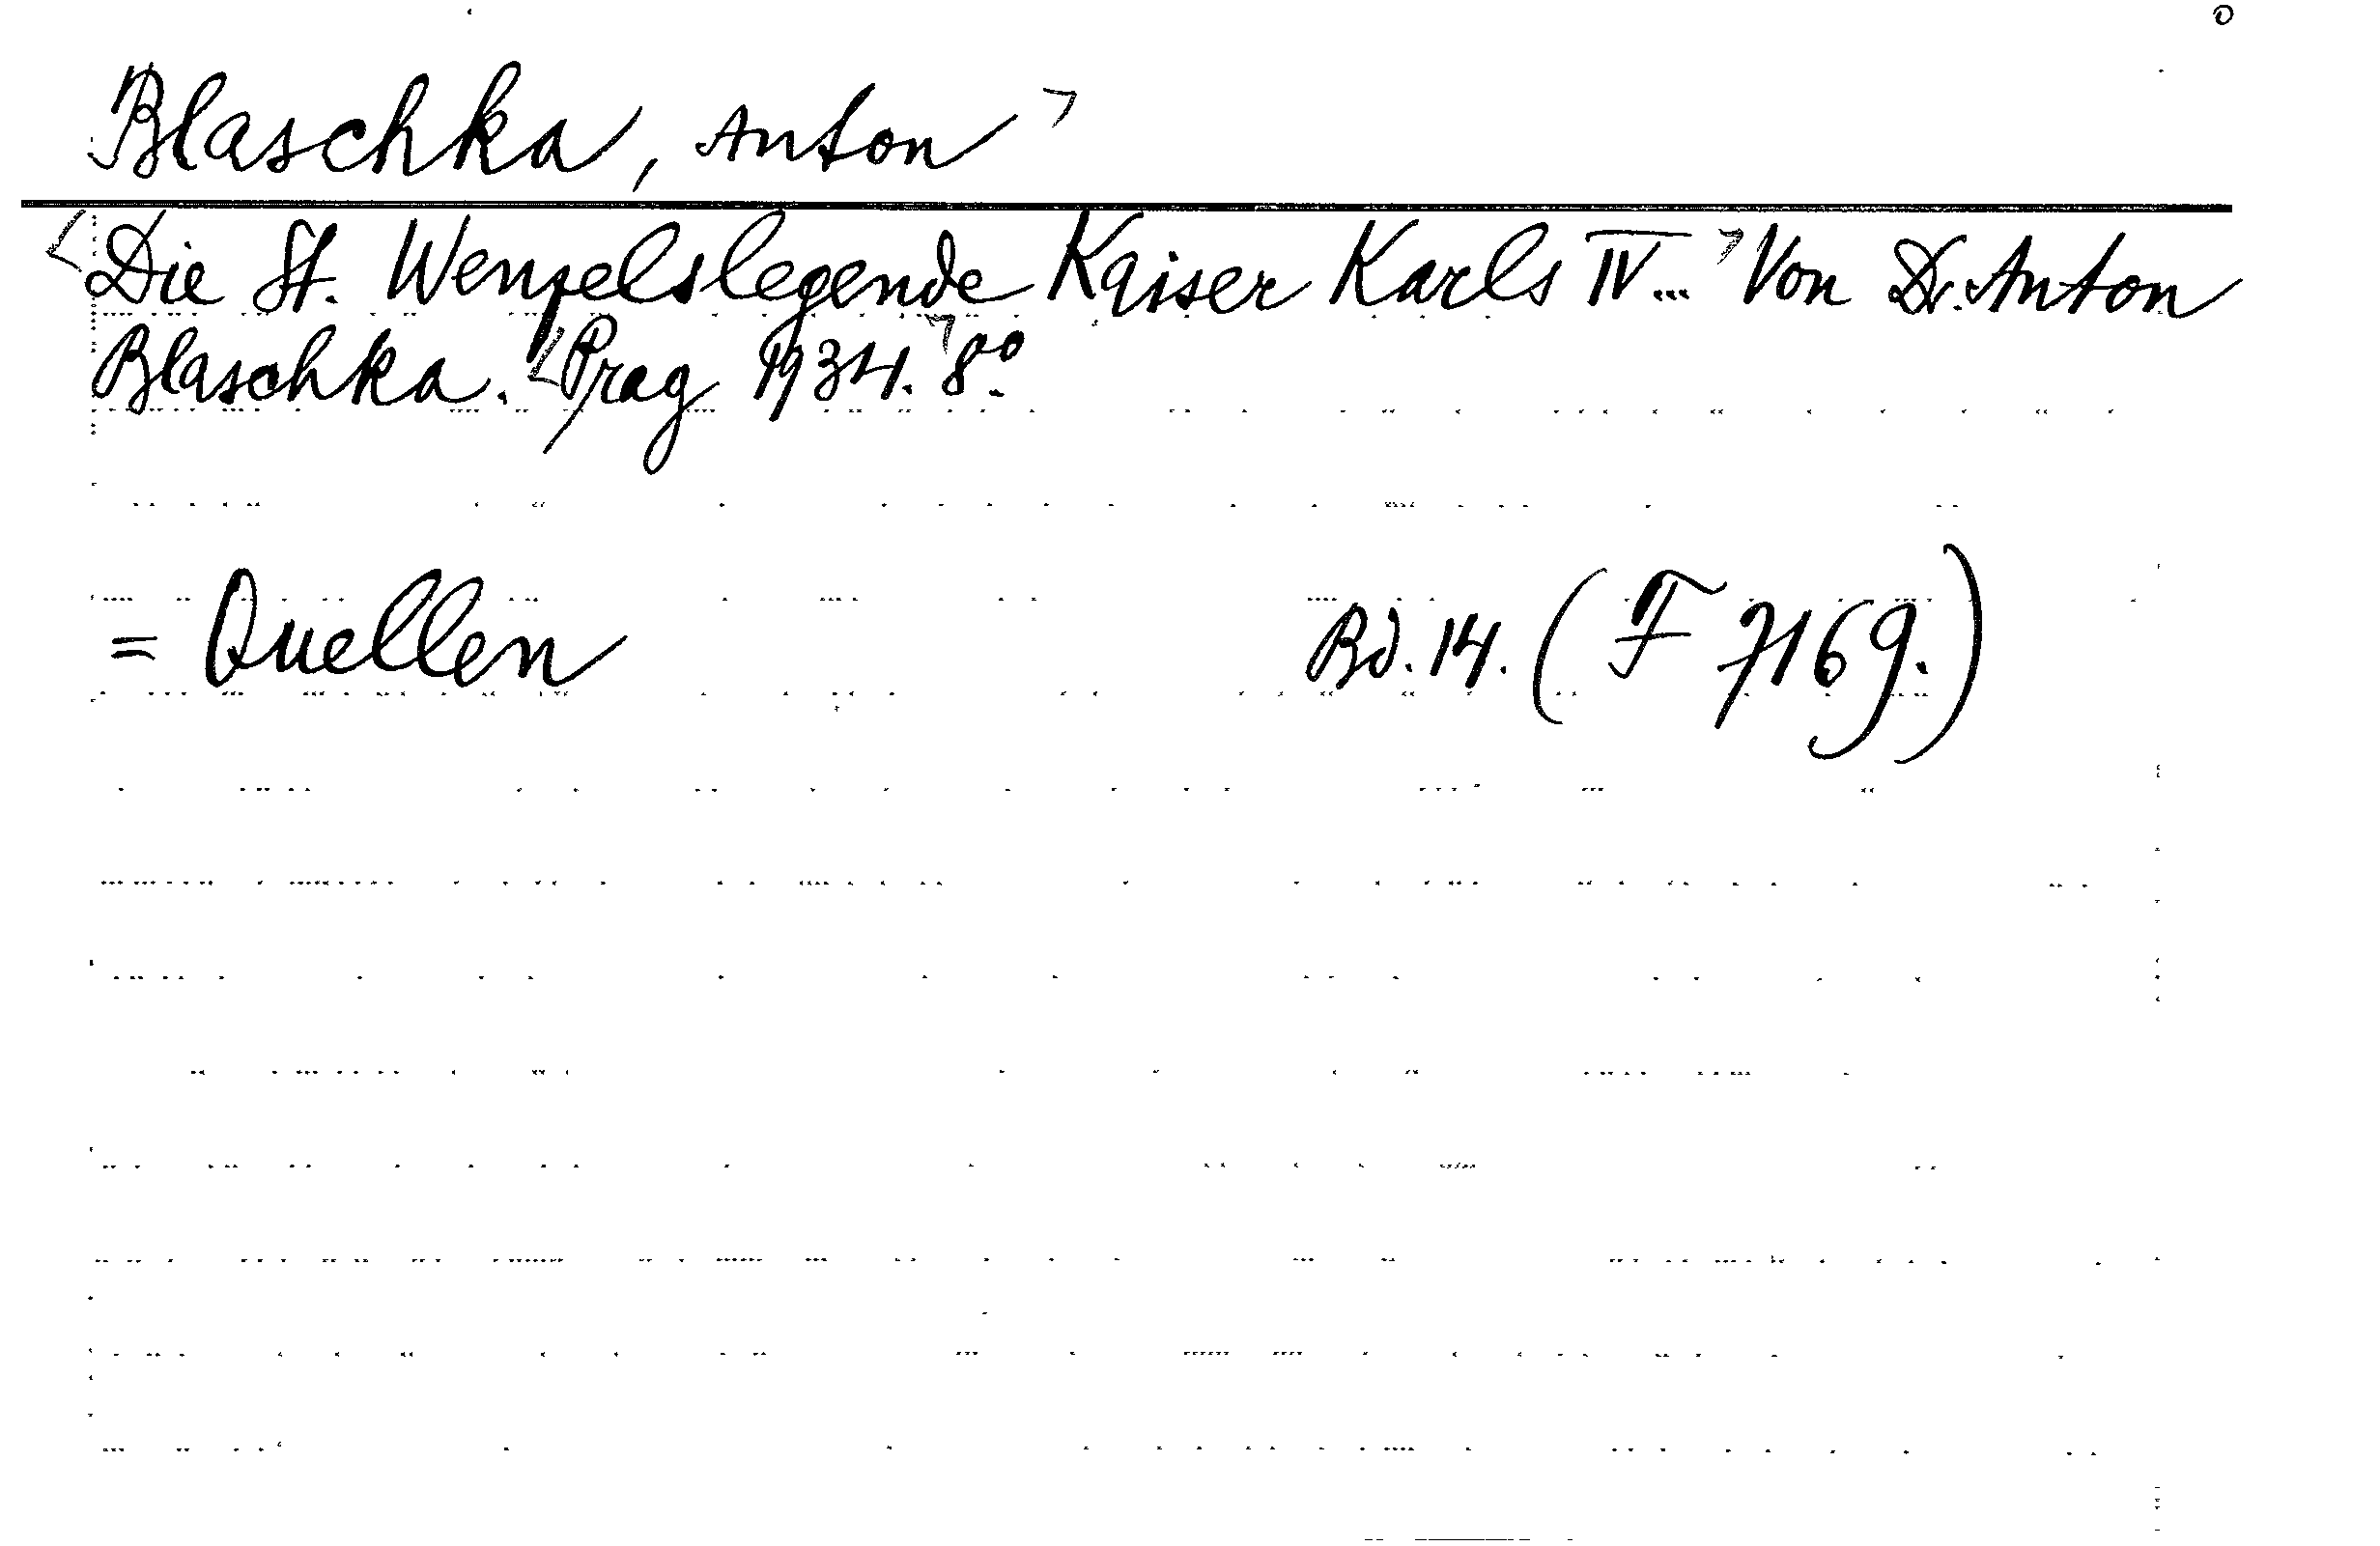 Blaschka, Anton
Die St. Wenzelslegende Kaiser Karls IV... Von Dr. Anton
Blaschka. Prag 1934. 8°.
= Quellen Bd. 14. (F 7169.)